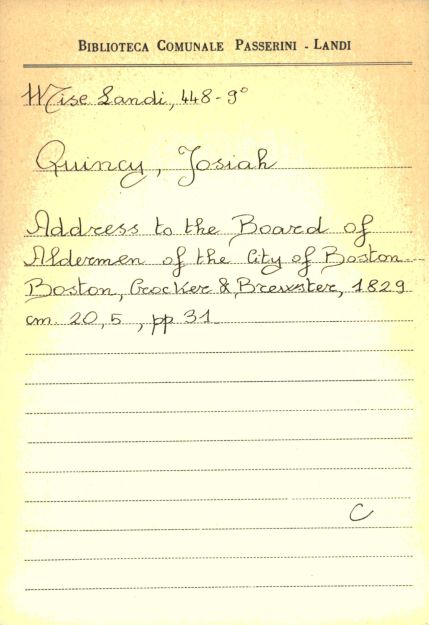 BIBLIOTECA COMUNALE PASSERINI - LANDI
Mise Landi, 448-9°
Quincy, Josiah
Address to the Board of
Aldermen of the City of Boston.-
Boston, Crocker & Brewster, 1829
cm 20,5, pp 31
C